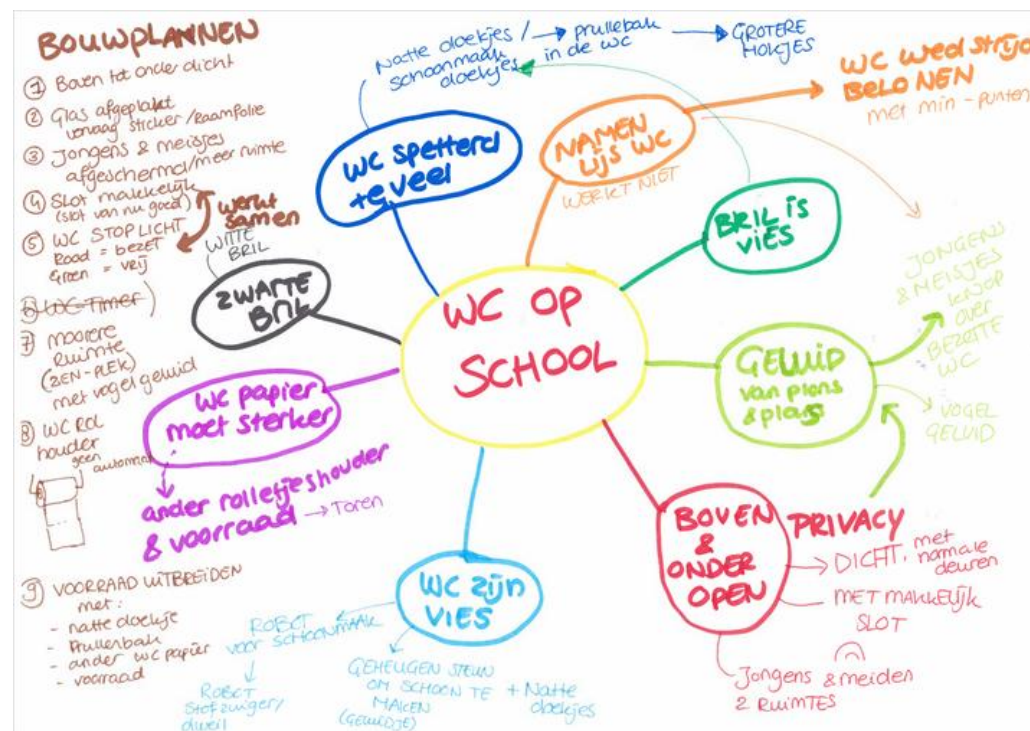 BOUWPLANNEN
① Boven tot onder dicht
② Glas afgeplakt
vervaag sticker/Raamfolie
③ Jongens & meisjes
afgeschermd/meer ruimte
④ Slot makkelijk
(slot van nu goed)
werkt
samen
⑤ WC STOPLICHT
Rood = bezet
Groen = vrij
⑥ WC-TIMER
⑦ mooiere
Ruimte
(ZEN-PLEK)
met vogel geluid
⑧ WC ROL
houder
geen
automaat
⑨ VOORRAAD UITBREIDEN
met:
- natte doekje
- Prullenbak
- ander wc papier
- voorraad
WC OP
SCHOOL
WC spetterd
te veel
Natte doekjes /
schoonmaak
doekjes
prullebak
in de wc
GROTERE
HOKJES
NAMEN
LIJS WC
WERKT NIET
WC wedstrijd
BELONEN
met min-punten
BRIL is
VIES
GELUID
van plons
& plas
JONGENS
& MEISJES
KNOP
over
BEZETTE
WC
VOGEL
GELUID
BOVEN
&
ONDER
OPEN
PRIVACY
DICHT, met
normale
deuren
MET MAKKELIJK
SLOT
Jongens & meiden
2 RUIMTES
WC zijn
VIES
ROBOT
voor SCHOONMAAK
ROBOT
Stofzuiger/
dweil
GEHEUGEN STEUN
OM SCHOON TE
MAKEN
(GELUIDJE)
+ Natte
doekjes
WC papier
moet sterker
ander rolletjeshouder
& voorraad → Toren
ZWARTE
BRIL
WITTE
BRIL